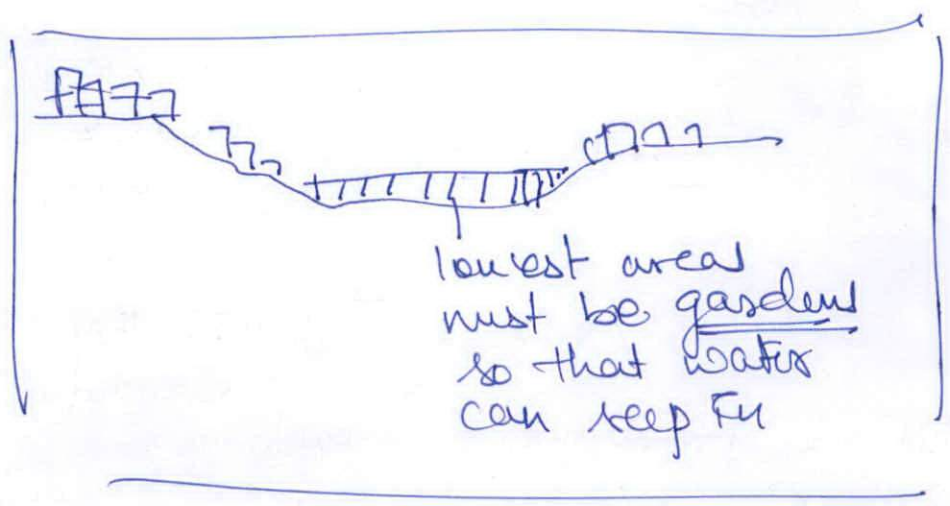 lowest areas
must be gardens
so that water
can seep in